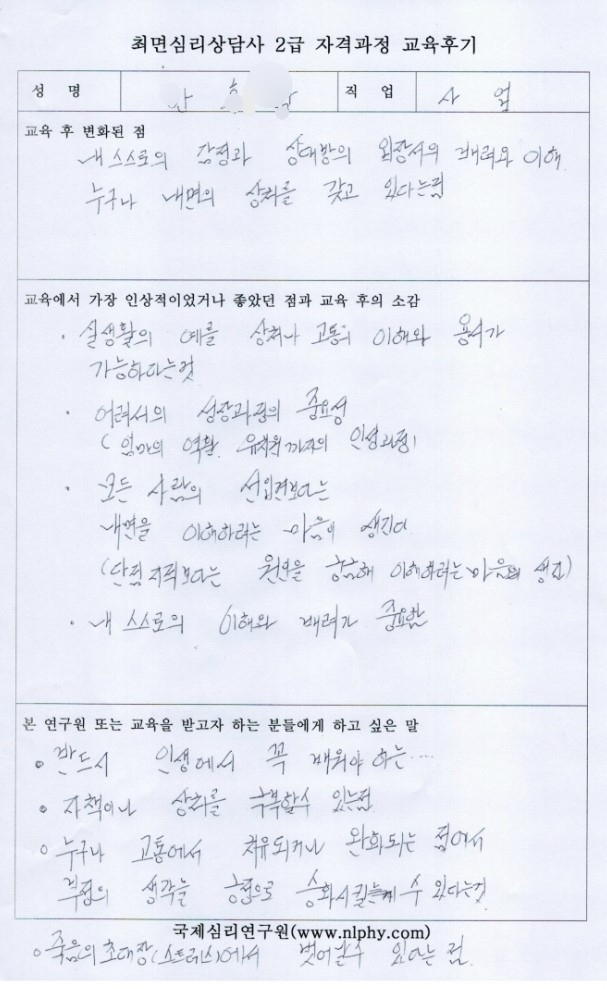 최면심리상담사 2급 자격과정 교육후기
성 명
직 업 사 업
교육 후 변화된 점
내 스스로의 감정과 상대방의 입장서의 배려와 이해
누구나 내면의 상처를 갖고 있다는점
교육에서 가장 인상적이었거나 좋았던 점과 교육 후의 소감
· 실생활의 예를 상처나 고통의 이해와 용서가
가능하다는것
· 어려서의 성장과정의 중요성
( 엄마의 역활. 유치원까지의 인성과정)
· 모든 사람의 선입견보다는
내면을 이해하려는 마음이 생긴다
(단점 지적보다는 이해하려는 마음의 생김)
· 내 스스로의 이해와 배려가 중요함
본 연구원 또는 교육을 받고자 하는 분들에게 하고 싶은 말
○ 반드시 인생에서 꼭 배워야 하는....
○ 자책이나 상처를 극복할수 있는점
○ 누구나 고통에서 치유되거나 완화되는 점에서
생각을 승화시킬 수 있다는것
국제심리연구원(www.nlphy.com)
○ 죽음의 초대장(스트레스)에서 벗어날수 있다는 점.